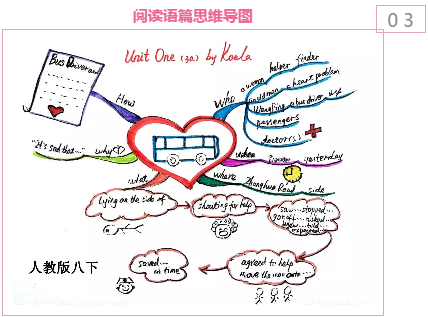 阅读语篇思维导图
03
Unit One (3a) by Koala
Bus Driver and
How
Who
a woman
helper finder
an old man a heart problem
Wang Ping a bus driver
passengers
doctor(s)
"It's sad that..." why
when
yesterday
where Zhonghua Road side
what
Lying on the side of
shouting for help
saw... stopped...
got off... asked...
knew... told...
expected...
agreed to help
move the man onto...
saved...
on time
人教版八下